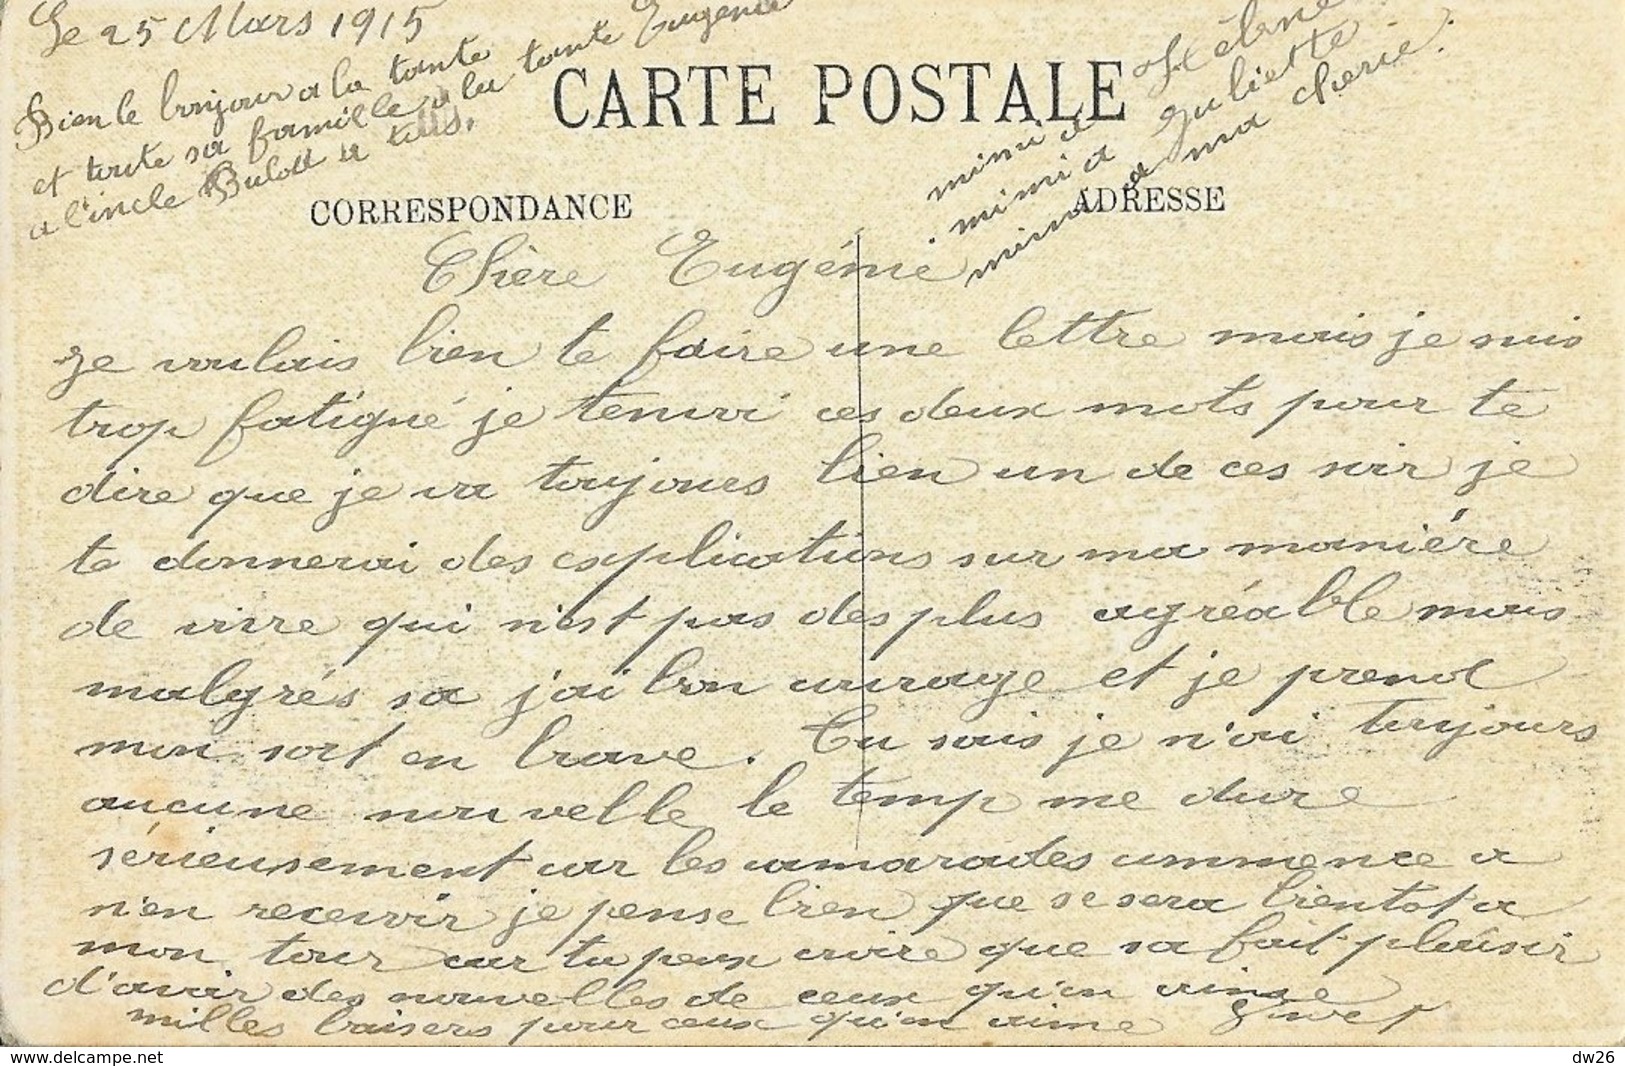 Le 25 Mars 1915
Bien le bonjour a la tante
et toute sa famille a la tante Eugenie
a l'incle a tous.
CARTE POSTALE
mimi a
mimi a Juliette
mimi a ma cherie.
CORRESPONDANCE
ADRESSE
Chère Eugénie
Je voulais bien te faire une lettre mais je suis
trop fatigué je tenvoi ces deux mots pour te
dire que je va toujours bien un de ces soir je
te donnerai des explications sur ma maniére
de vivre qui n'est pas des plus agréable mais
malgrés sa j'ai bon courage et je prend
mon sort en brave. Tu sais je n'ai toujours
aucune nouvelle le temp me dure
sérieusement car les camarades commence a
n'en recevoir je pense bien que se sera bientot a
mon tour car tu peux croire que sa fait plaisir
d'avoir des nouvelles de ceux qu'on aime
milles baisers pour ceux qu'on aime
delcampe.net
dw26